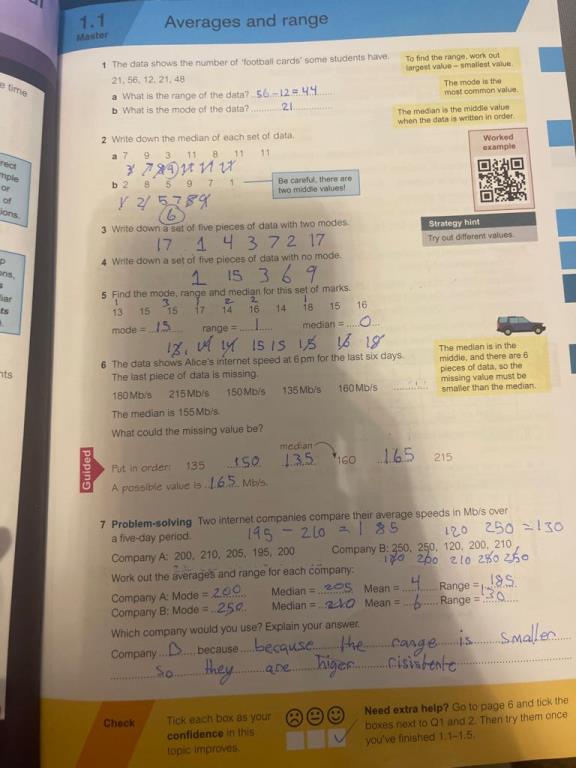 1.1
Master
Averages and range
1 The data shows the number of 'football cards' some students have.
21, 56, 12, 21, 48
a What is the range of the data? 56-12=44
b What is the mode of the data? 21
To find the range, work out
largest value – smallest value.
The mode is the
most common value.
The median is the middle value
when the data is written in order.
2 Write down the median of each set of data.
a 7 9 3 11 8 11 11
3 7 8 9 11 11 11
b 2 8 5 9 7 1
Be careful, there are
two middle values!
1 2 5 7 8 9
6
Worked
example
3 Write down a set of five pieces of data with two modes.
17 1 4 3 7 2 17
Strategy hint
Try out different values.
4 Write down a set of five pieces of data with no mode.
1 15 3 6 9
5 Find the mode, range and median for this set of marks.
1 3 1 2 2 1
13 15 15 17 14 16 14 18 15 16
mode = 15 range = 1 median = 0
15 15 15 16 18
6 The data shows Alice's internet speed at 6 pm for the last six days.
The last piece of data is missing.
180 Mb/s 215 Mb/s 150 Mb/s 135 Mb/s 160 Mb/s
The median is 155 Mb/s.
What could the missing value be?
The median is in the
middle, and there are 6
pieces of data, so the
missing value must be
smaller than the median.
Guided
median
Put in order: 135 150 135 160 165 215
A possible value is 165 Mb/s.
7 Problem-solving Two internet companies compare their average speeds in Mb/s over
a five-day period.
195 - 210 = 185
120 250 = 130
Company A: 200, 210, 205, 195, 200 Company B: 250, 250, 120, 200, 210
Work out the averages and range for each company:
Company A: Mode = 200 Median = 205 Mean = 4 Range = 185
Company B: Mode = 250 Median = 210 Mean = 6 Range = 130
Which company would you use? Explain your answer.
Company B because because the range is smaller
so they are higer risistente
Check
Tick each box as your
confidence in this
topic improves.
Need extra help? Go to page 6 and tick the
boxes next to Q1 and 2. Then try them once
you've finished 1.1–1.5.